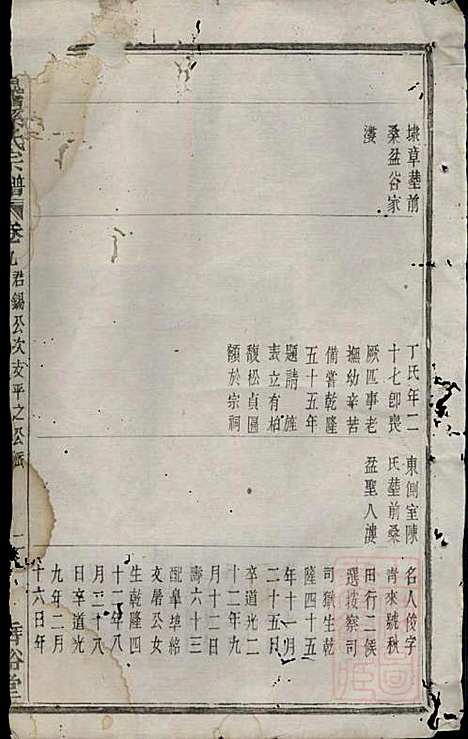 埭章塟前
桑盆谷家
漊
丁氏年二
十七卽喪
厥匹事老
撫幼辛苦
備嘗乾隆
五十五年
題請旌
表立有柏
馥松貞匾
額於宗祠
東側室陳
氏塟前桑
盆聖人漊
名人俊字
青來號秋
田行二候
選按察司
司獄生乾
隆四十五
年十一月
二十五日
卒道光二
十二年九
月十二日
壽六十三
配皐埠
女屠公女
生乾隆四
十二年八
月二十八
日辛道光
九年二月
十六日年
孫氏宗譜
卷九
君錫公次支平之公派
裕堂